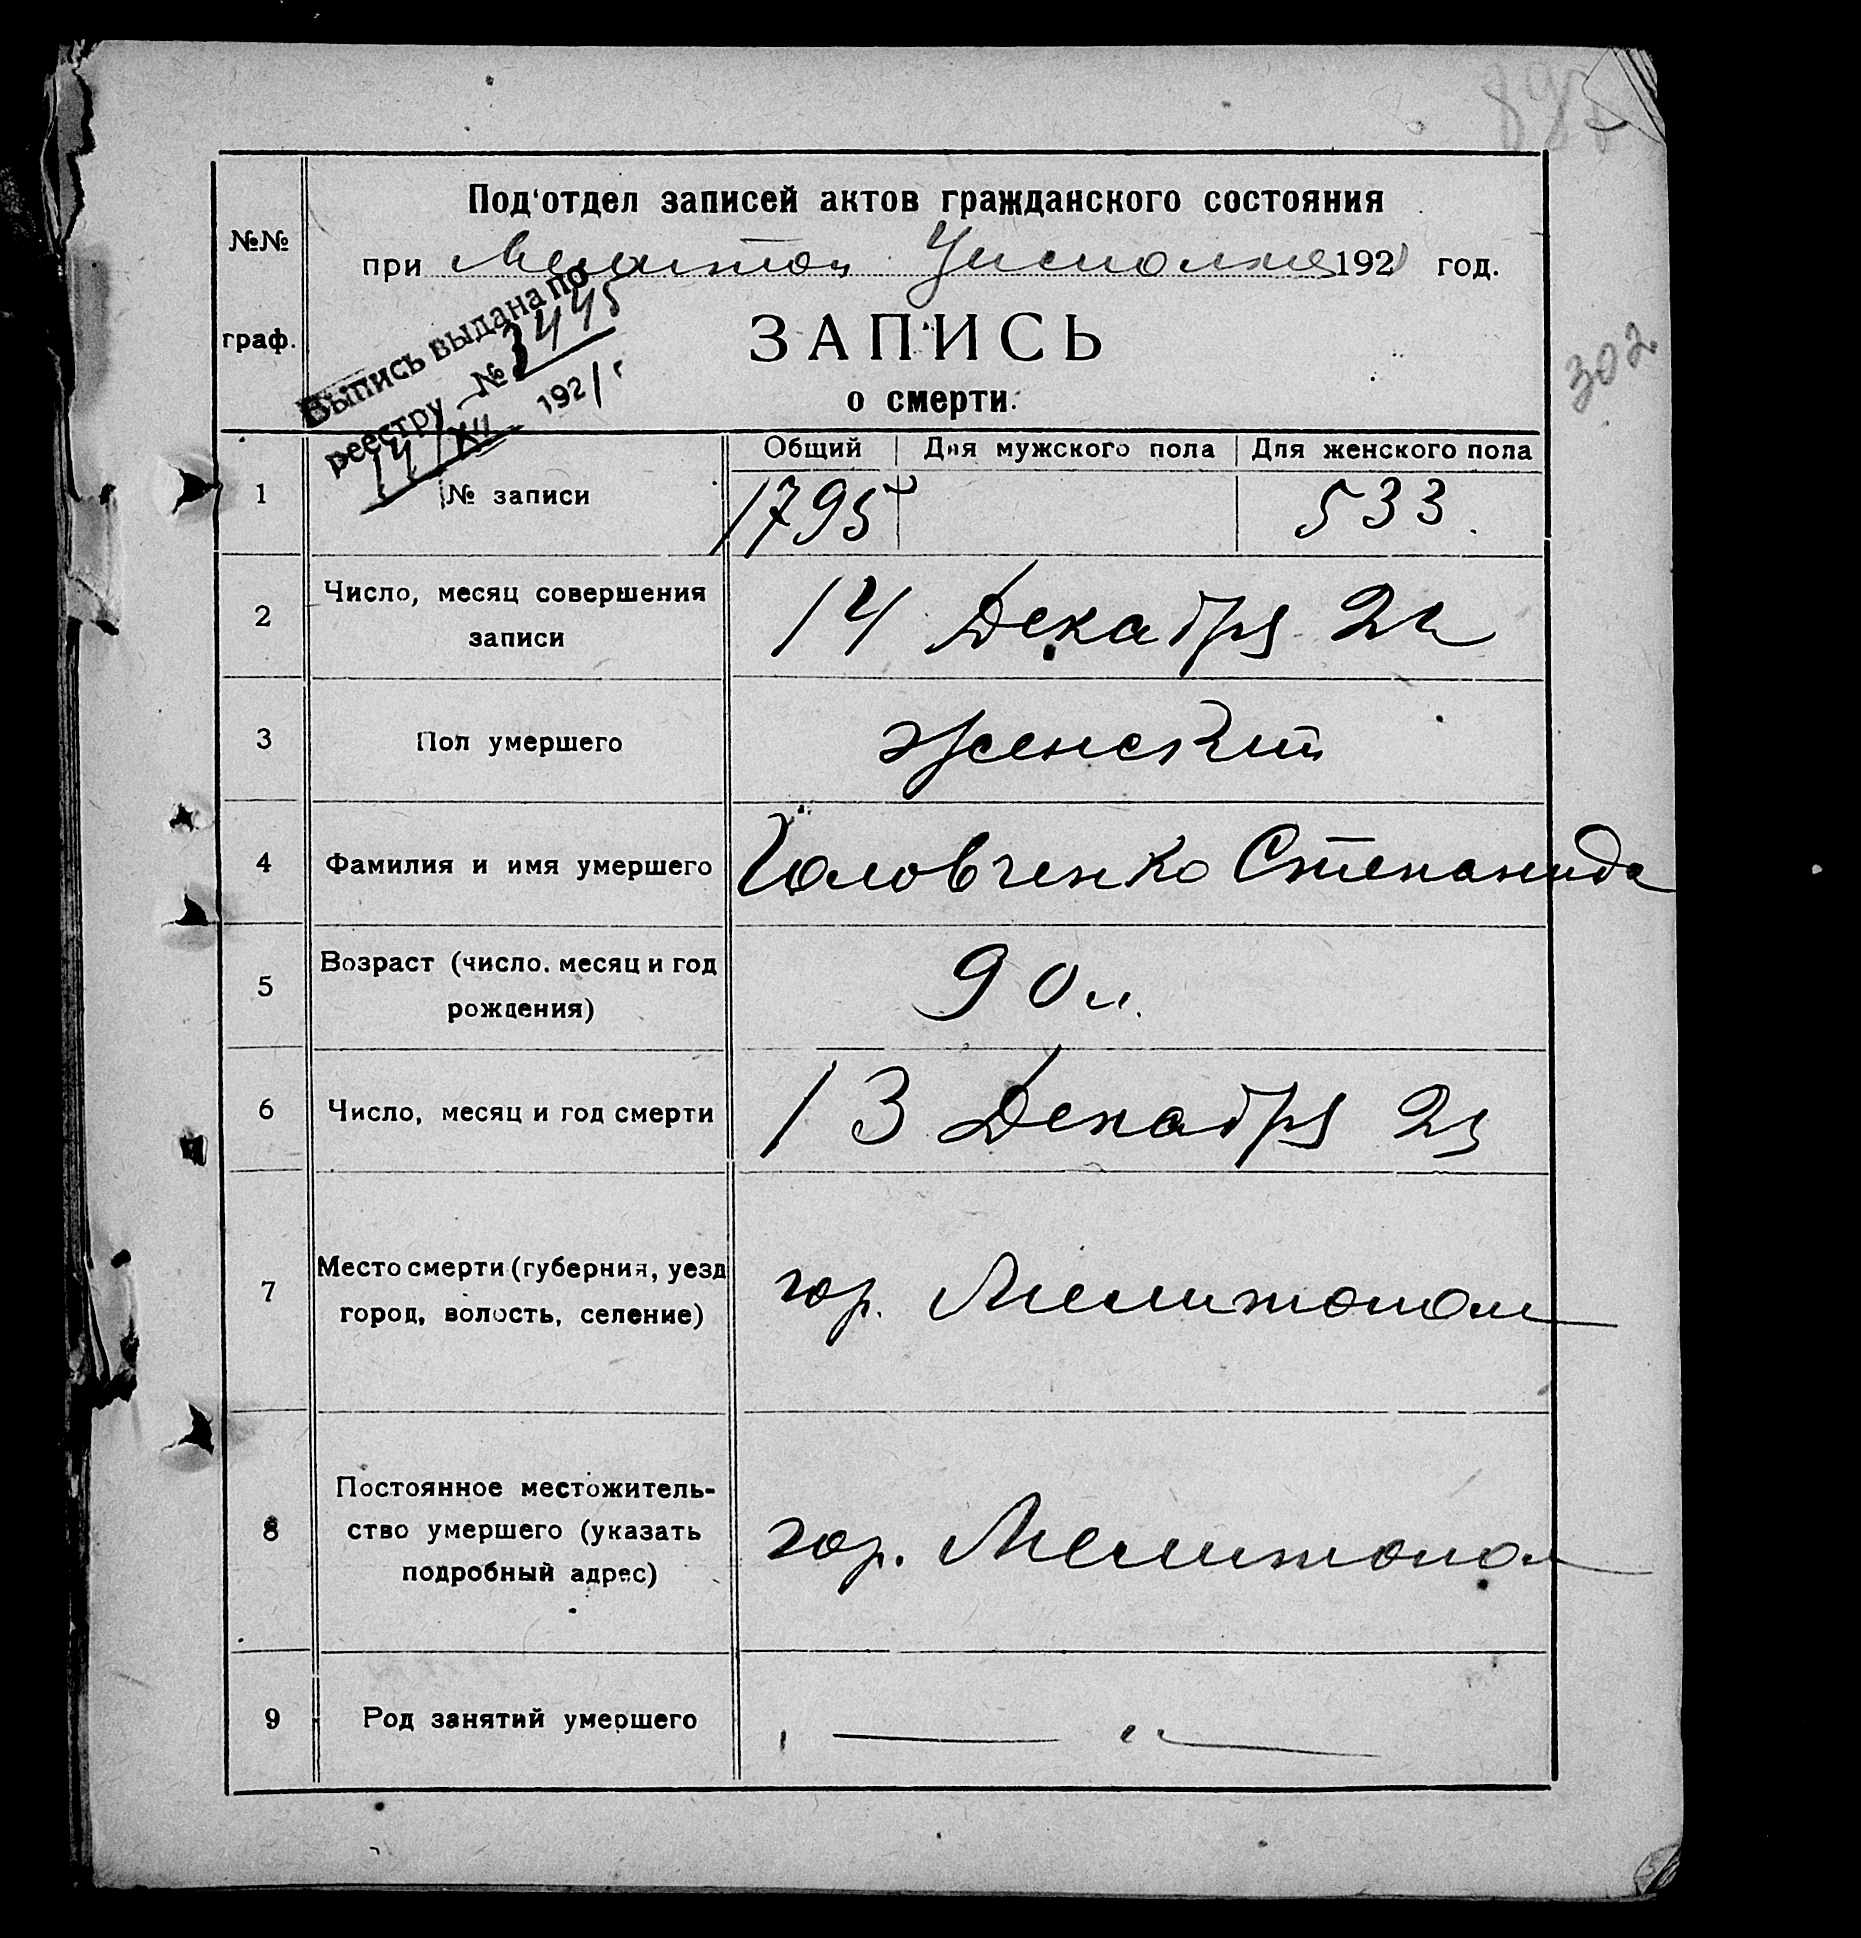 302
№№
граф.
Под'отдел записей актов гражданского состояния
при Мелитоп Уисполкме 1921 год.
Выпись выдана по
реестру № 3445
14/XII 1921 г.
ЗАПИСЬ
о смерти.
Общий Для мужского пола Для женского пола
1 № записи 1795 533
2 Число, месяц совершения
записи
14 Декабря 21
3 Пол умершего Женский
4 Фамилия и имя умершего Головченко Степанида
5 Возраст (число, месяц и год
рождения)
90 л.
6 Число, месяц и год смерти 13 Декабря 21
7 Место смерти (губерния, уезд
город, волость, селение)
гор. Мелитополь
8 Постоянное местожитель-
ство умершего (указать
подробный адрес)
гор. Мелитопол
9 Род занятий умершего